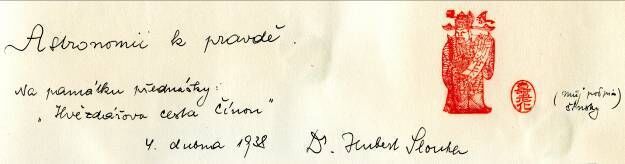 Astronomií k pravdě.
Na památku přednášky:
„Hvězdářova cesta Čínou"
4. dubna 1938 Dr. Hubert Slouka
(můj podpis
čínsky)